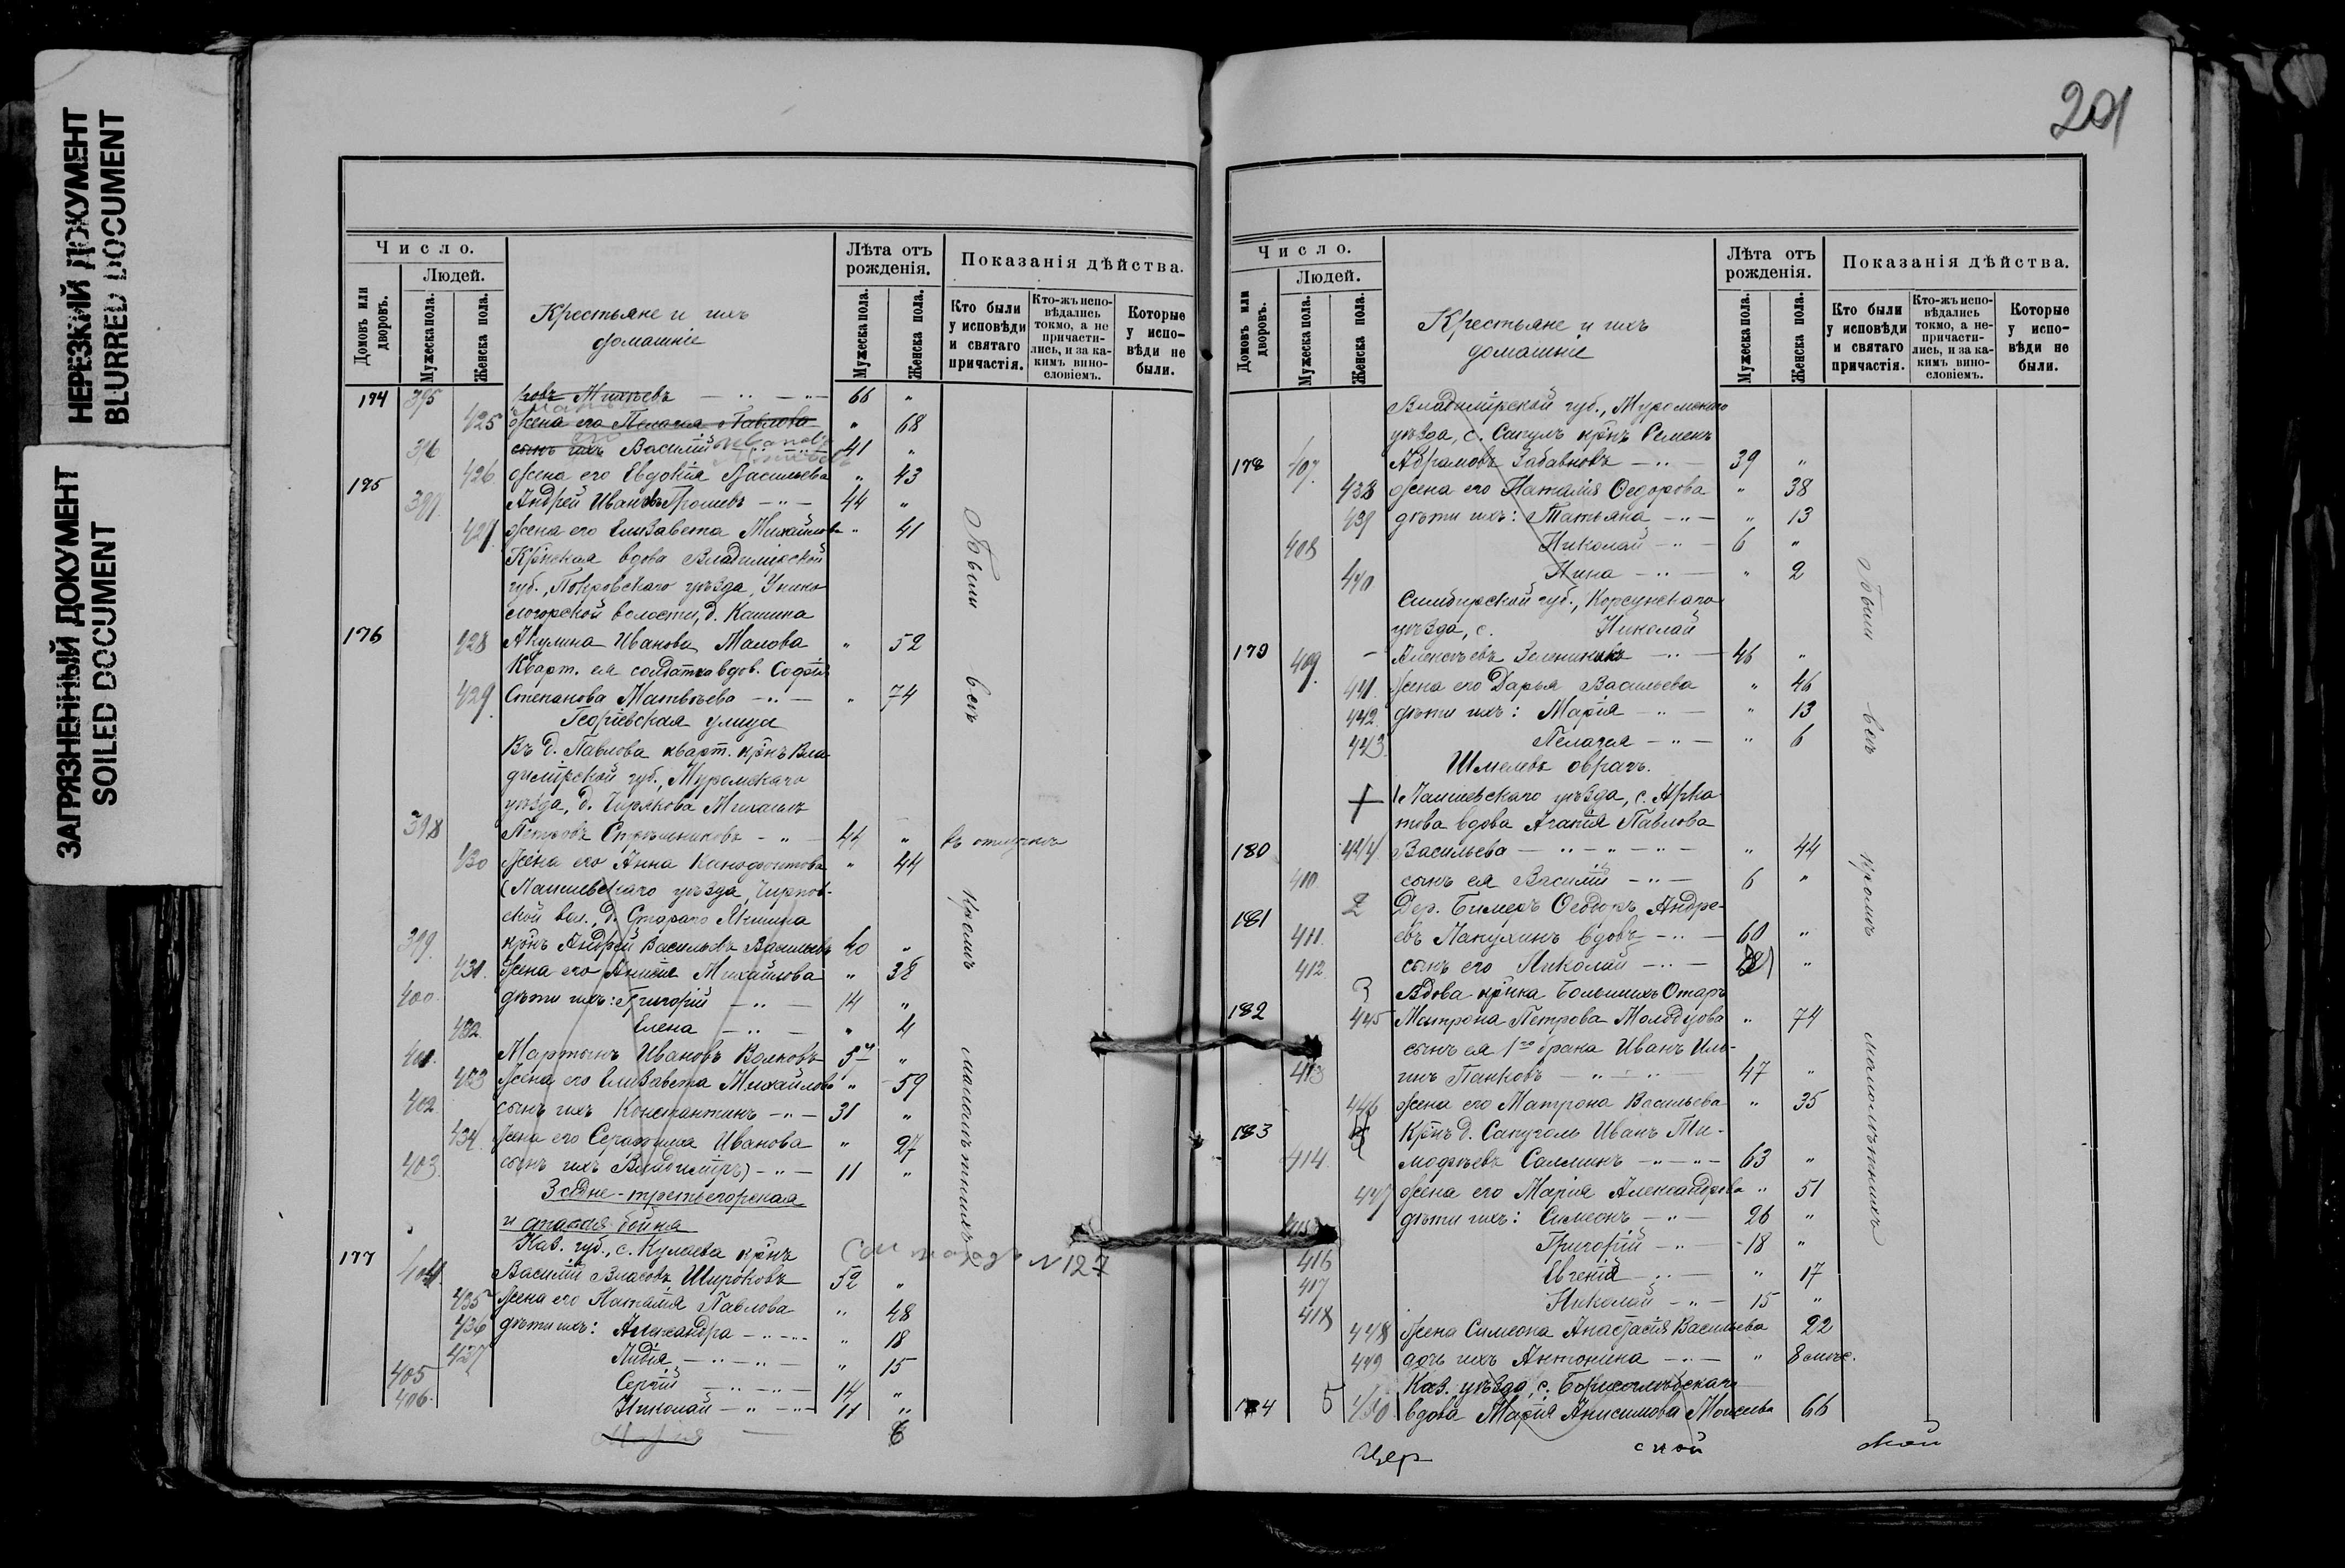 НЕРЕЗКИЙ ДОКУМЕНТ
BLURRED DOCUMENT
ЗАГРЯЗНЕННЫЙ ДОКУМЕНТ
SOILED DOCUMENT
Число.
Людей.
Домовъ или дворовъ.
Мужеска пола.
Женска пола.
Крестьяне и ихъ
домашніе
Лѣта отъ
рожденія.
Мужеска пола.
Женска пола.
Показанія дѣйства.
Кто были
у исповѣди
и святаго
причастія.
Кто-жъ испо-
вѣдались
токмо, а не
причасти-
лись, и за ка-
кимъ вино-
словіемъ.
Которые
у испо-
вѣди не
были.
174 395 66 "
425 Жена его Пелагія Павлова " 68
396 сынъ ихъ Василій 41 "
426 Жена его Евдокія Васильева " 43
175 397 Андрей Ивановъ Грошевъ 44 "
427 Жена его Елизавета Михайлова " 41
Крѣнская вдова Владимірской
губ., Покровскаго уѣзда,
волости, д. Кашина
176 428 Акулина Иванова Малова " 52
Кварт. ея солдатка вдов. Софія
429 Степанова Матвѣева " 74
Георгіевская улица
Въ д. Павлова кварт. крнъ Вла-
димірской губ., Муромскаго
уѣзда, д. Михаилъ
398 Петровъ 44 " въ отлучкѣ
430 Жена его Анна Ксенофонтова " 44
(Лаишевскаго уѣзда,
ской вол., д. Стараго
399 крнъ Андрей Васильевъ Васильевъ 40 "
431 Жена его Анисія Михайлова " 38
400 дѣти ихъ: Григорій 14 "
432 Елена " 4
401 Мартынъ Ивановъ Волковъ 57 "
433 Жена его Елизавета Михайлова " 59
402 сынъ ихъ Константинъ 31 "
434 Жена его Серафима Иванова " 27
403 сынъ ихъ Владиміръ) 11 "
Задне-третьегорская
и бойня
Каз. губ., с. Кулаева крнъ
177 404 Василій Власовъ Широковъ 52 "
435 Жена его Наталія Павлова " 48
436 дѣти ихъ: Александра " 18
437 Лидія " 15
405 Сергій 14 "
406 Николай 11 "
Марія 6
Были
всѣ
кромѣ
малолѣтнихъ
N 127
201
Число.
Людей.
Домовъ или дворовъ.
Мужеска пола.
Женска пола.
Крестьяне и ихъ
домашніе
Лѣта отъ
рожденія.
Мужеска пола.
Женска пола.
Показанія дѣйства.
Кто были
у исповѣди
и святаго
причастія.
Кто-жъ испо-
вѣдались
токмо, а не-
причасти-
лись, и за ка-
кимъ вино-
словіемъ.
Которые
у испо-
вѣди не
были.
Владимірской губ., Муромскаго
уѣзда, с. Сапунъ крнъ Семенъ
178 407 Абрамовъ Забавновъ 39 "
438 Жена его Наталія Ѳедорова " 38
439 дѣти ихъ: Татьяна " 13
408 Николай 6 "
440 Нина " 2
Симбирской губ., Корсунскаго
уѣзда, с. Николай
179 409 Алексѣевъ 46 "
441 Жена его Дарья Васильева " 46
442 дѣти ихъ: Марія " 13
443 Пелагія " 6
Шмелевъ оврагъ.
Лаишевскаго уѣзда, с. Арка-
това вдова Агапія Павлова
180 444 Васильева " 44
410 сынъ ея Василій 6 "
2 Дер. Бимерь Ѳеодоръ Андре-
181 411 евъ Лапухинъ вдовъ 60 "
412 сынъ его Николай "
3 Вдова крнка Большихъ Отаръ
182 445 Матрона Петрова Молодцова " 74
сынъ ея 1го брака Иванъ Иль-
413 инъ Панковъ 47 "
446 Жена его Матрона Васильева " 35
183 крнъ д. Сапуголь Иванъ Ти-
414 мофѣевъ Салминъ 63 "
447 Жена его Марія Александрова " 51
дѣти ихъ: Симеонъ 26 "
416 Григорій 18 "
417 Евгенія " 17
418 Николай 15 "
448 Жена Симеона Анастасія Васильева 22
449 дочь ихъ Антонина " 8 мѣс.
Каз. уѣзда, с. Борисоглѣбскаго
184 5 450 вдова Марія Анисимова Моисеева 66
Были
всѣ
кромѣ
малолѣтнихъ
ской